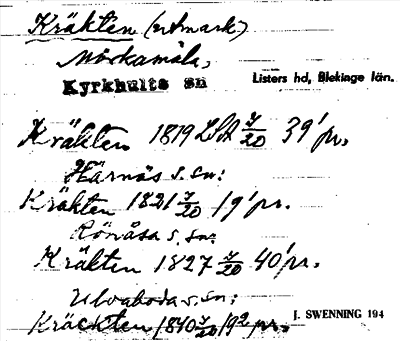 Kräkten (utmark)
Mörkamåla,
Kyrkhults sn Listers hd, Blekinge län.
Kräkten 1819 LSA 7/20 39' pr.
Härnäs s. sn:
Kräkten 1821 7/20 19' pr.
Rönåsa s. sn:
Kräkten 1827 7/20 40' pr.
Ulvaboda s. sn:
Kräckten 1840 7/20 19² pr.
J. SWENNING 194